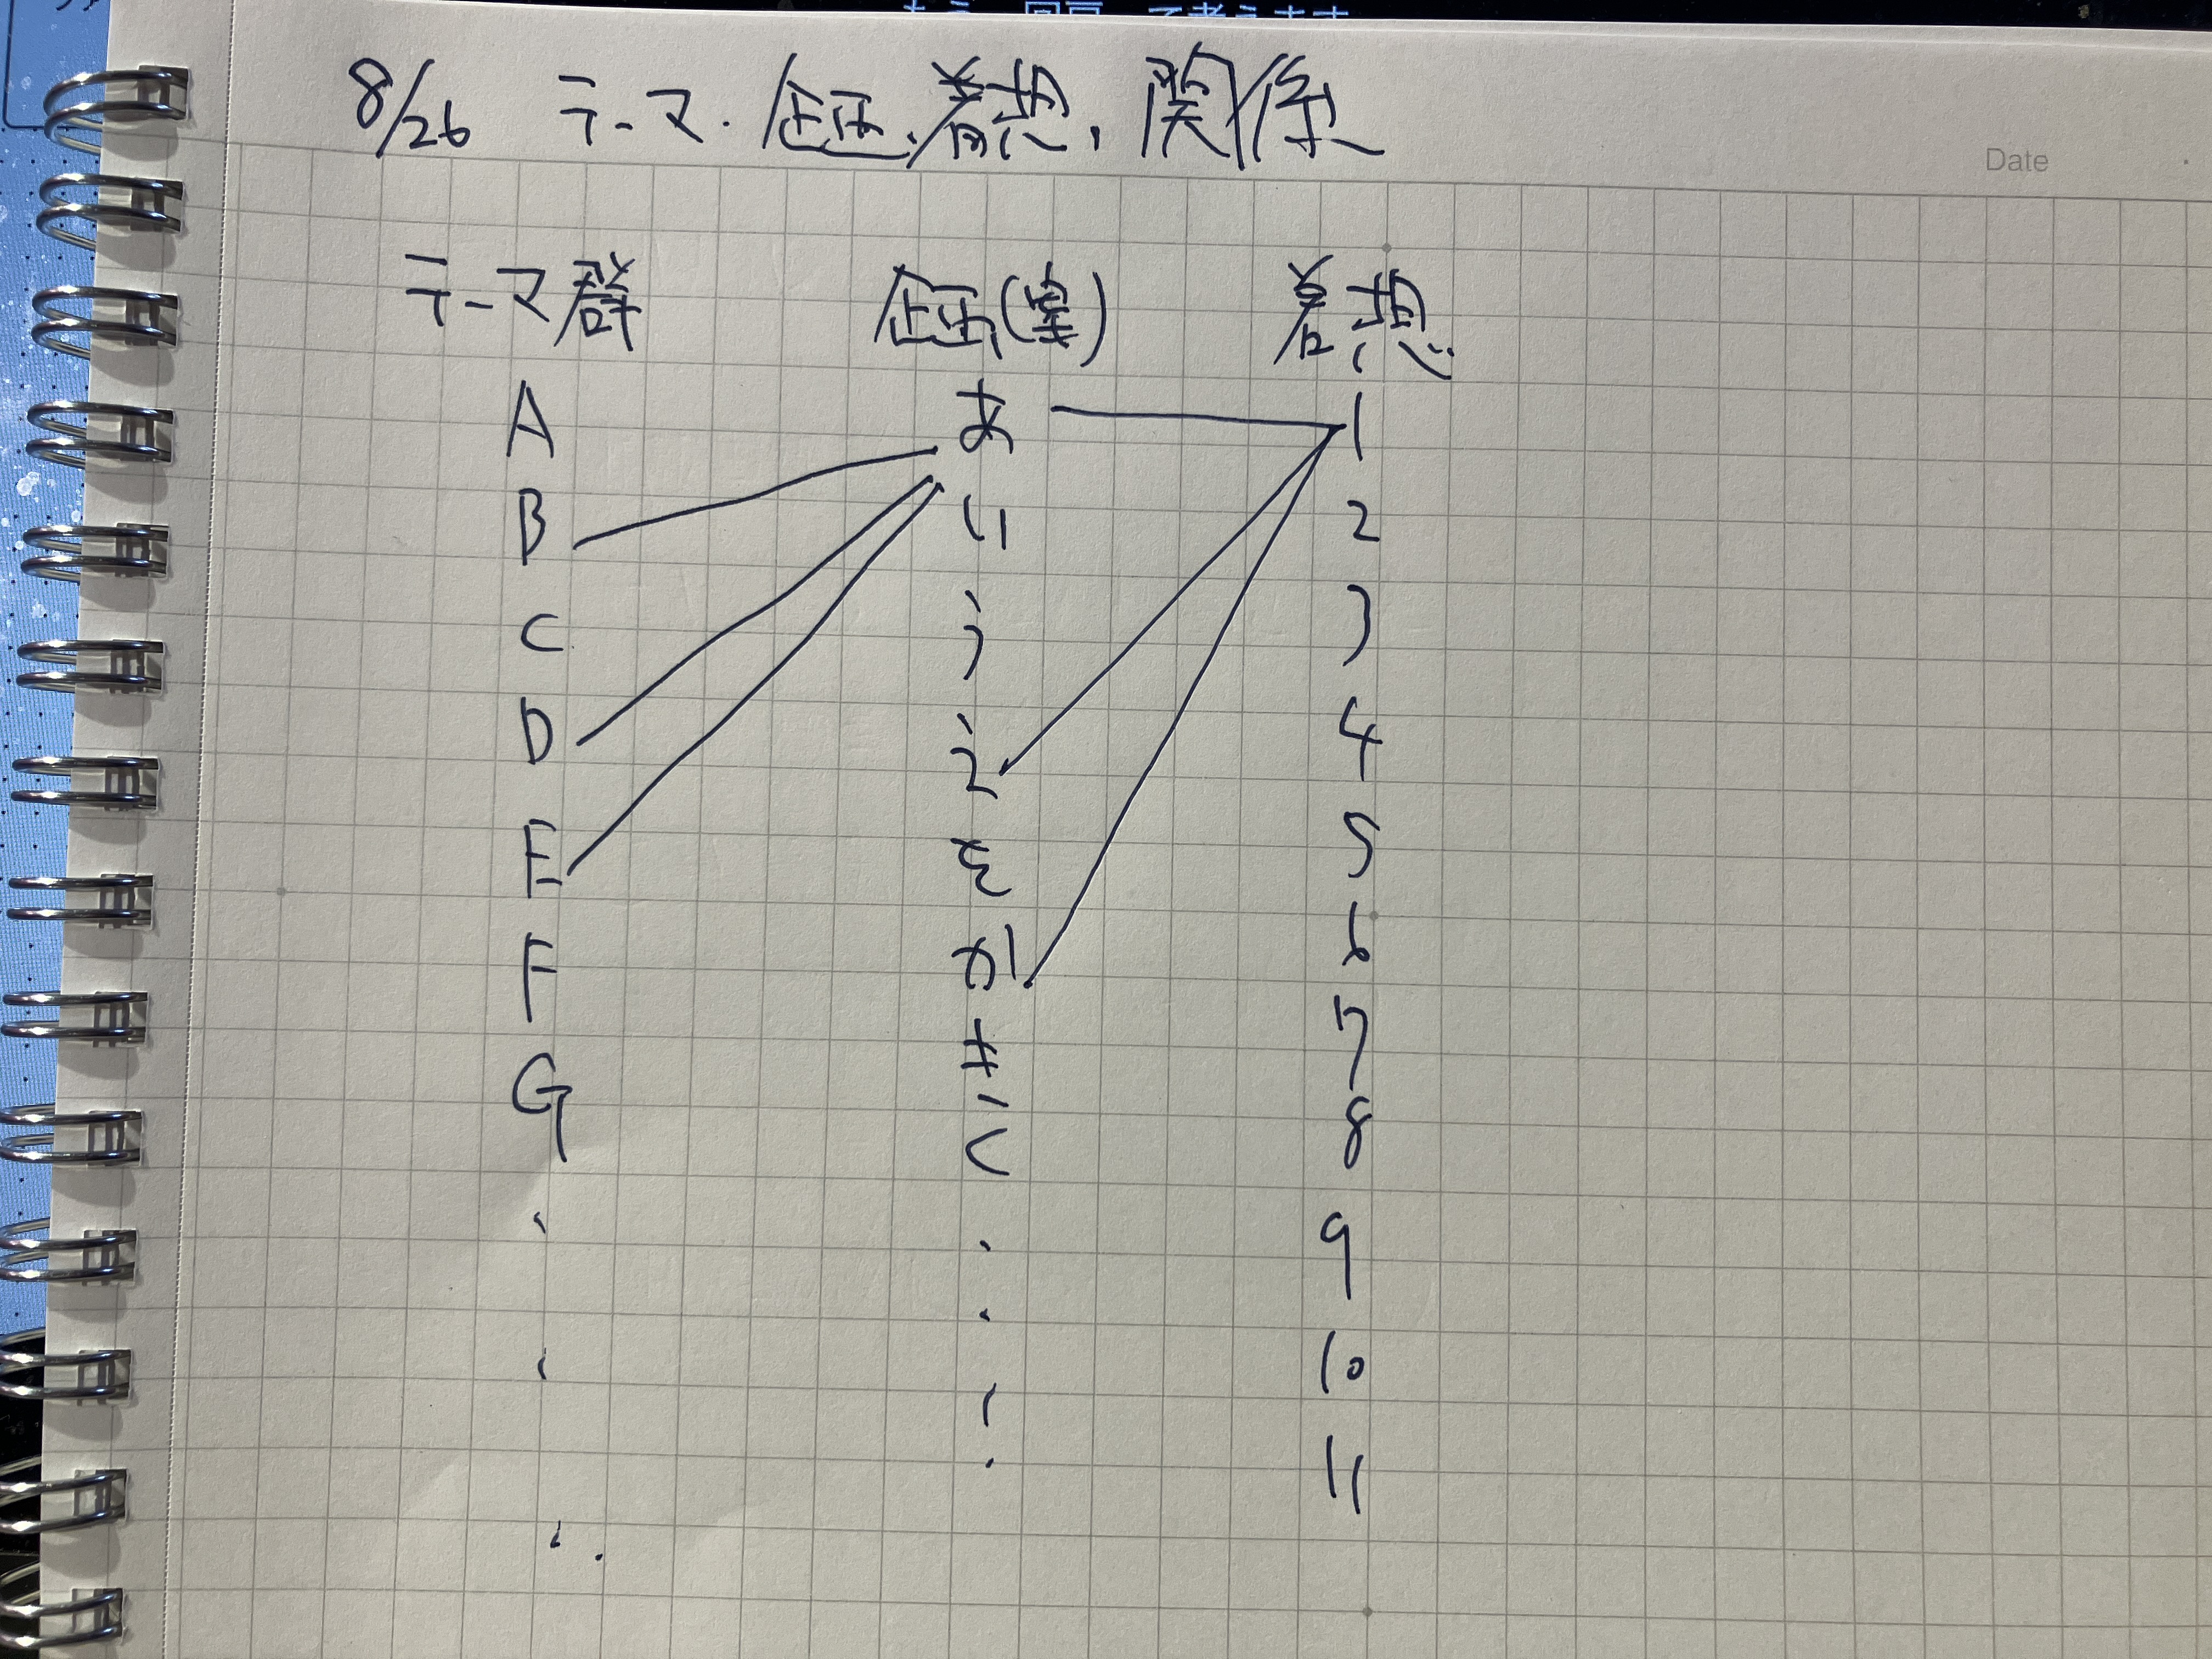 8/26 テーマ. 企画. 着想. 関係
Date
テーマ群 企画(案) 着想
A あ 1
B い 2
C う 3
D え 4
E を 5
F か 6
G き 7
く 8
9
10
11